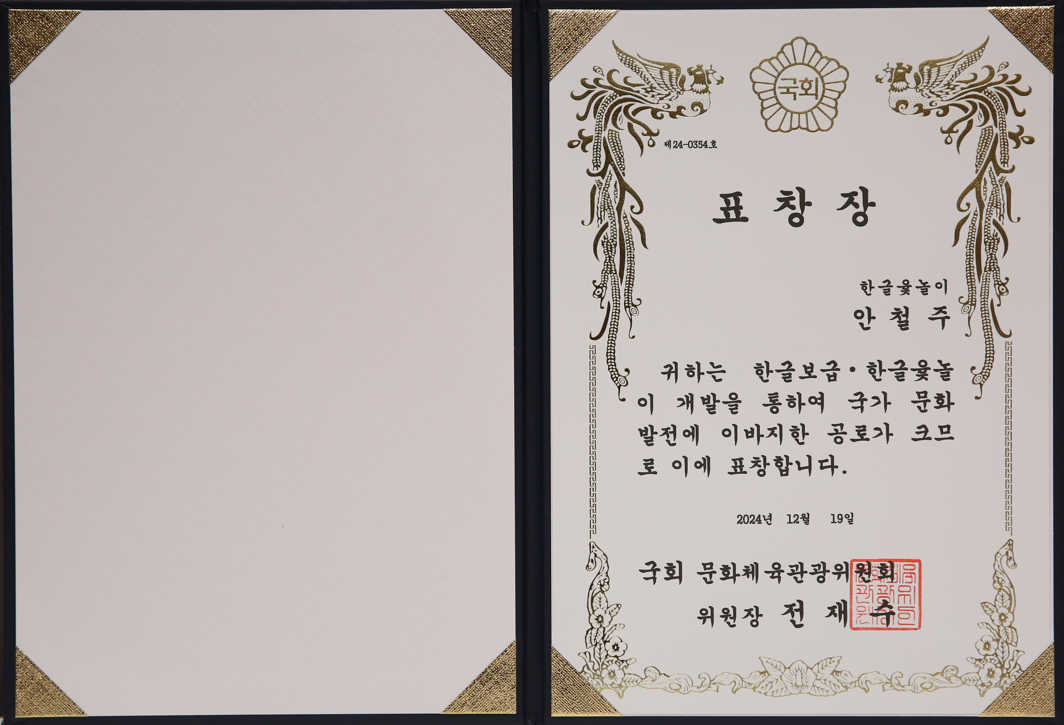 국회
제24-0354호
표 창 장
한글윷놀이
안 철 주
귀하는 한글보급·한글윷놀
이 개발을 통하여 국가 문화
발전에 이바지한 공로가 크므
로 이에 표창합니다.
2024년 12월 19일
국회 문화체육관광위원회
위원장 전 재 수